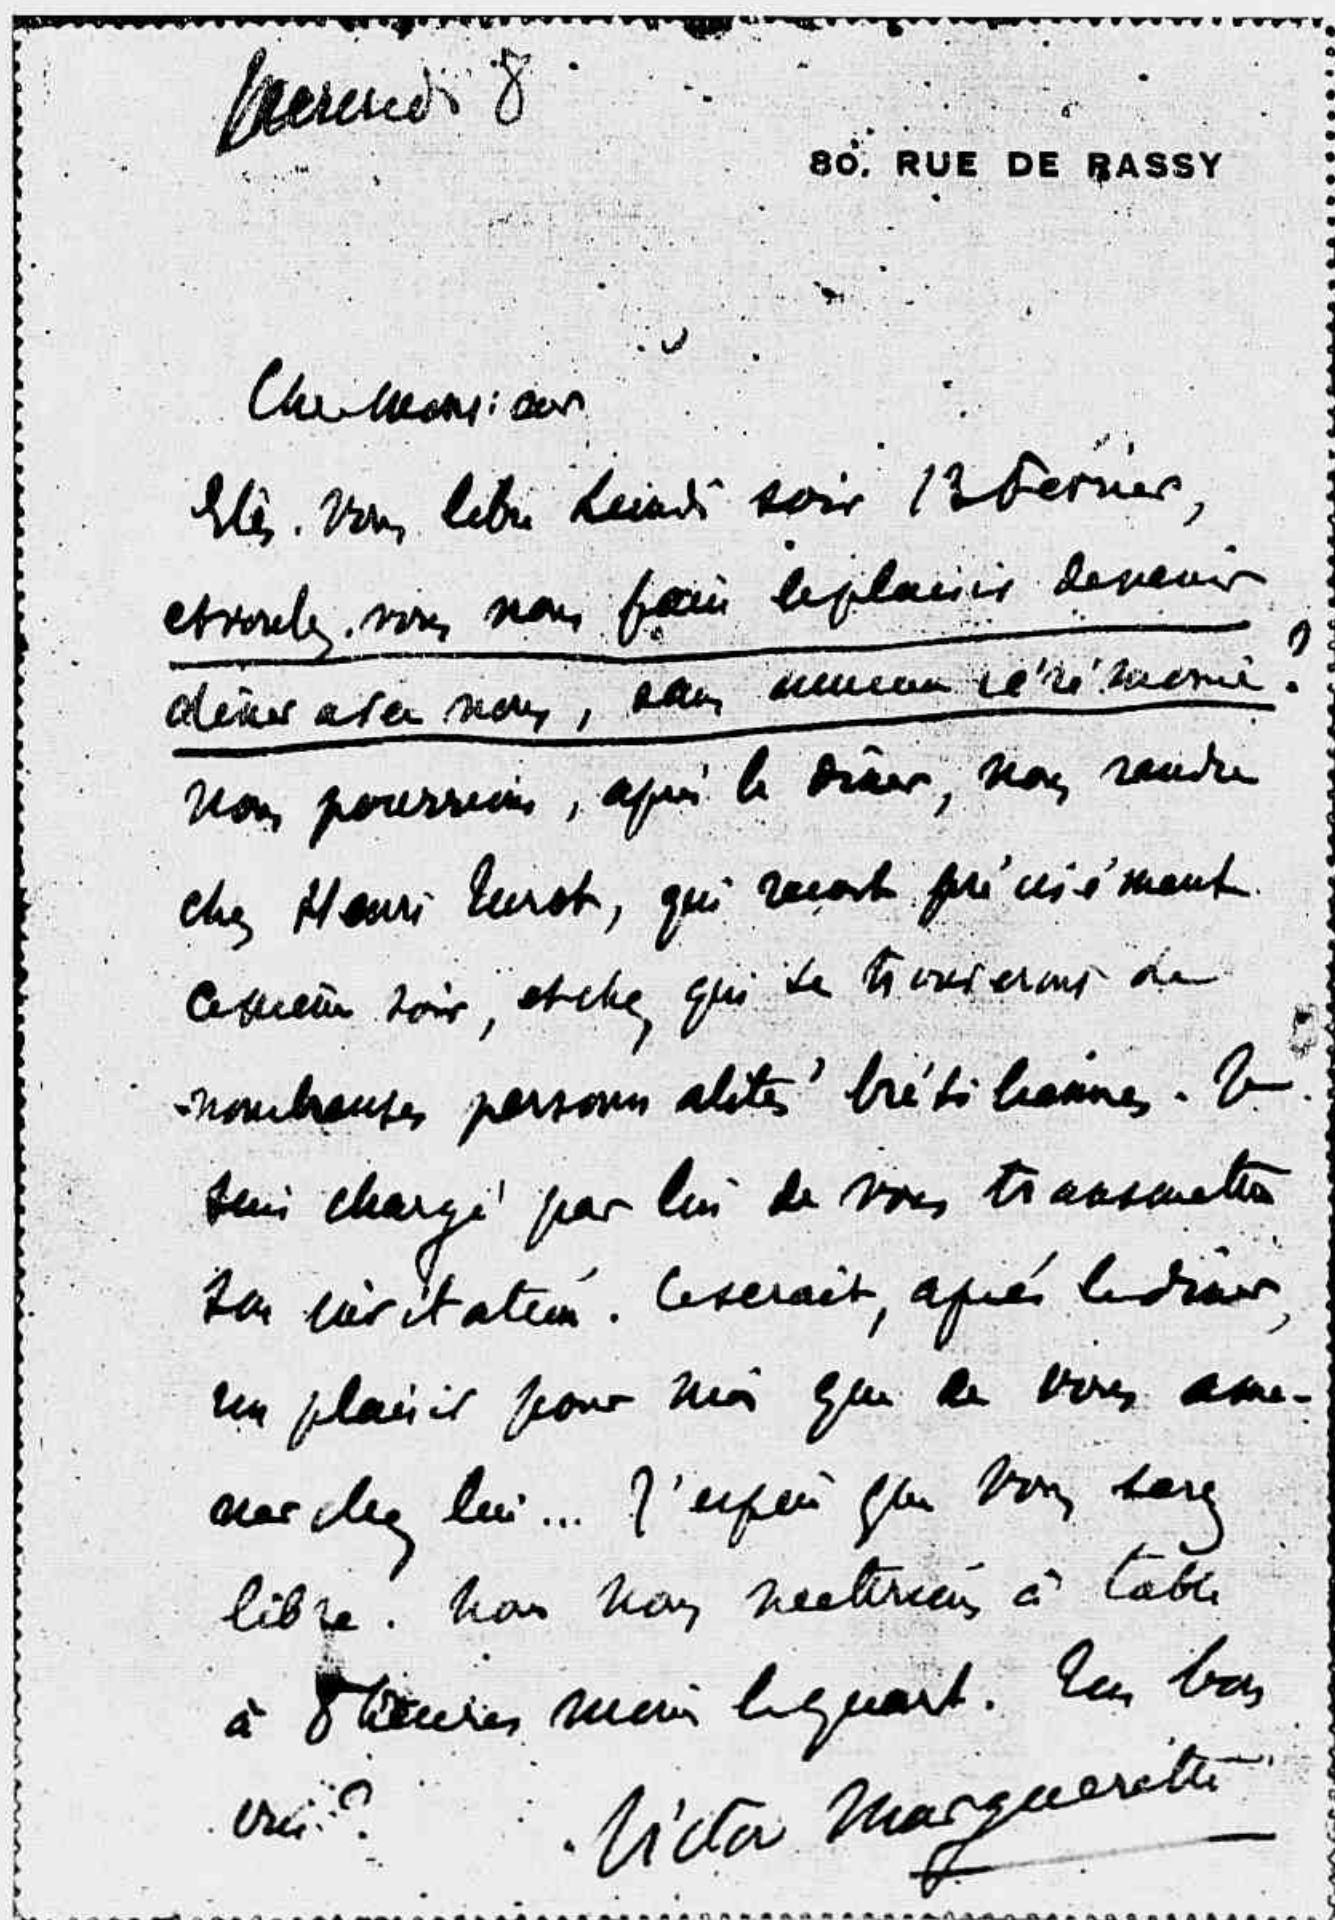 Mercredi 8
80. RUE DE PASSY
Cher Monsieur
Etes-vous libre Lundi soir 13 Février,
et voulez-vous nous faire le plaisir de venir
dîner avec nous, sans aucune cérémonie?
Nous pourrions, après le dîner, nous rendre
chez Henri Turot, qui reçoit précisément
ce même soir, et chez qui se trouveront de
nombreuses personnalités brésiliennes. Je
suis chargé par lui de vous transmettre
son invitation. Ce serait, après le dîner,
un plaisir pour moi que de vous ame-
ner chez lui... J'espère que vous serez
libre. Nous nous mettrions à table
à 8 heures moins le quart. Un bon
oui?
Victor Margueritte